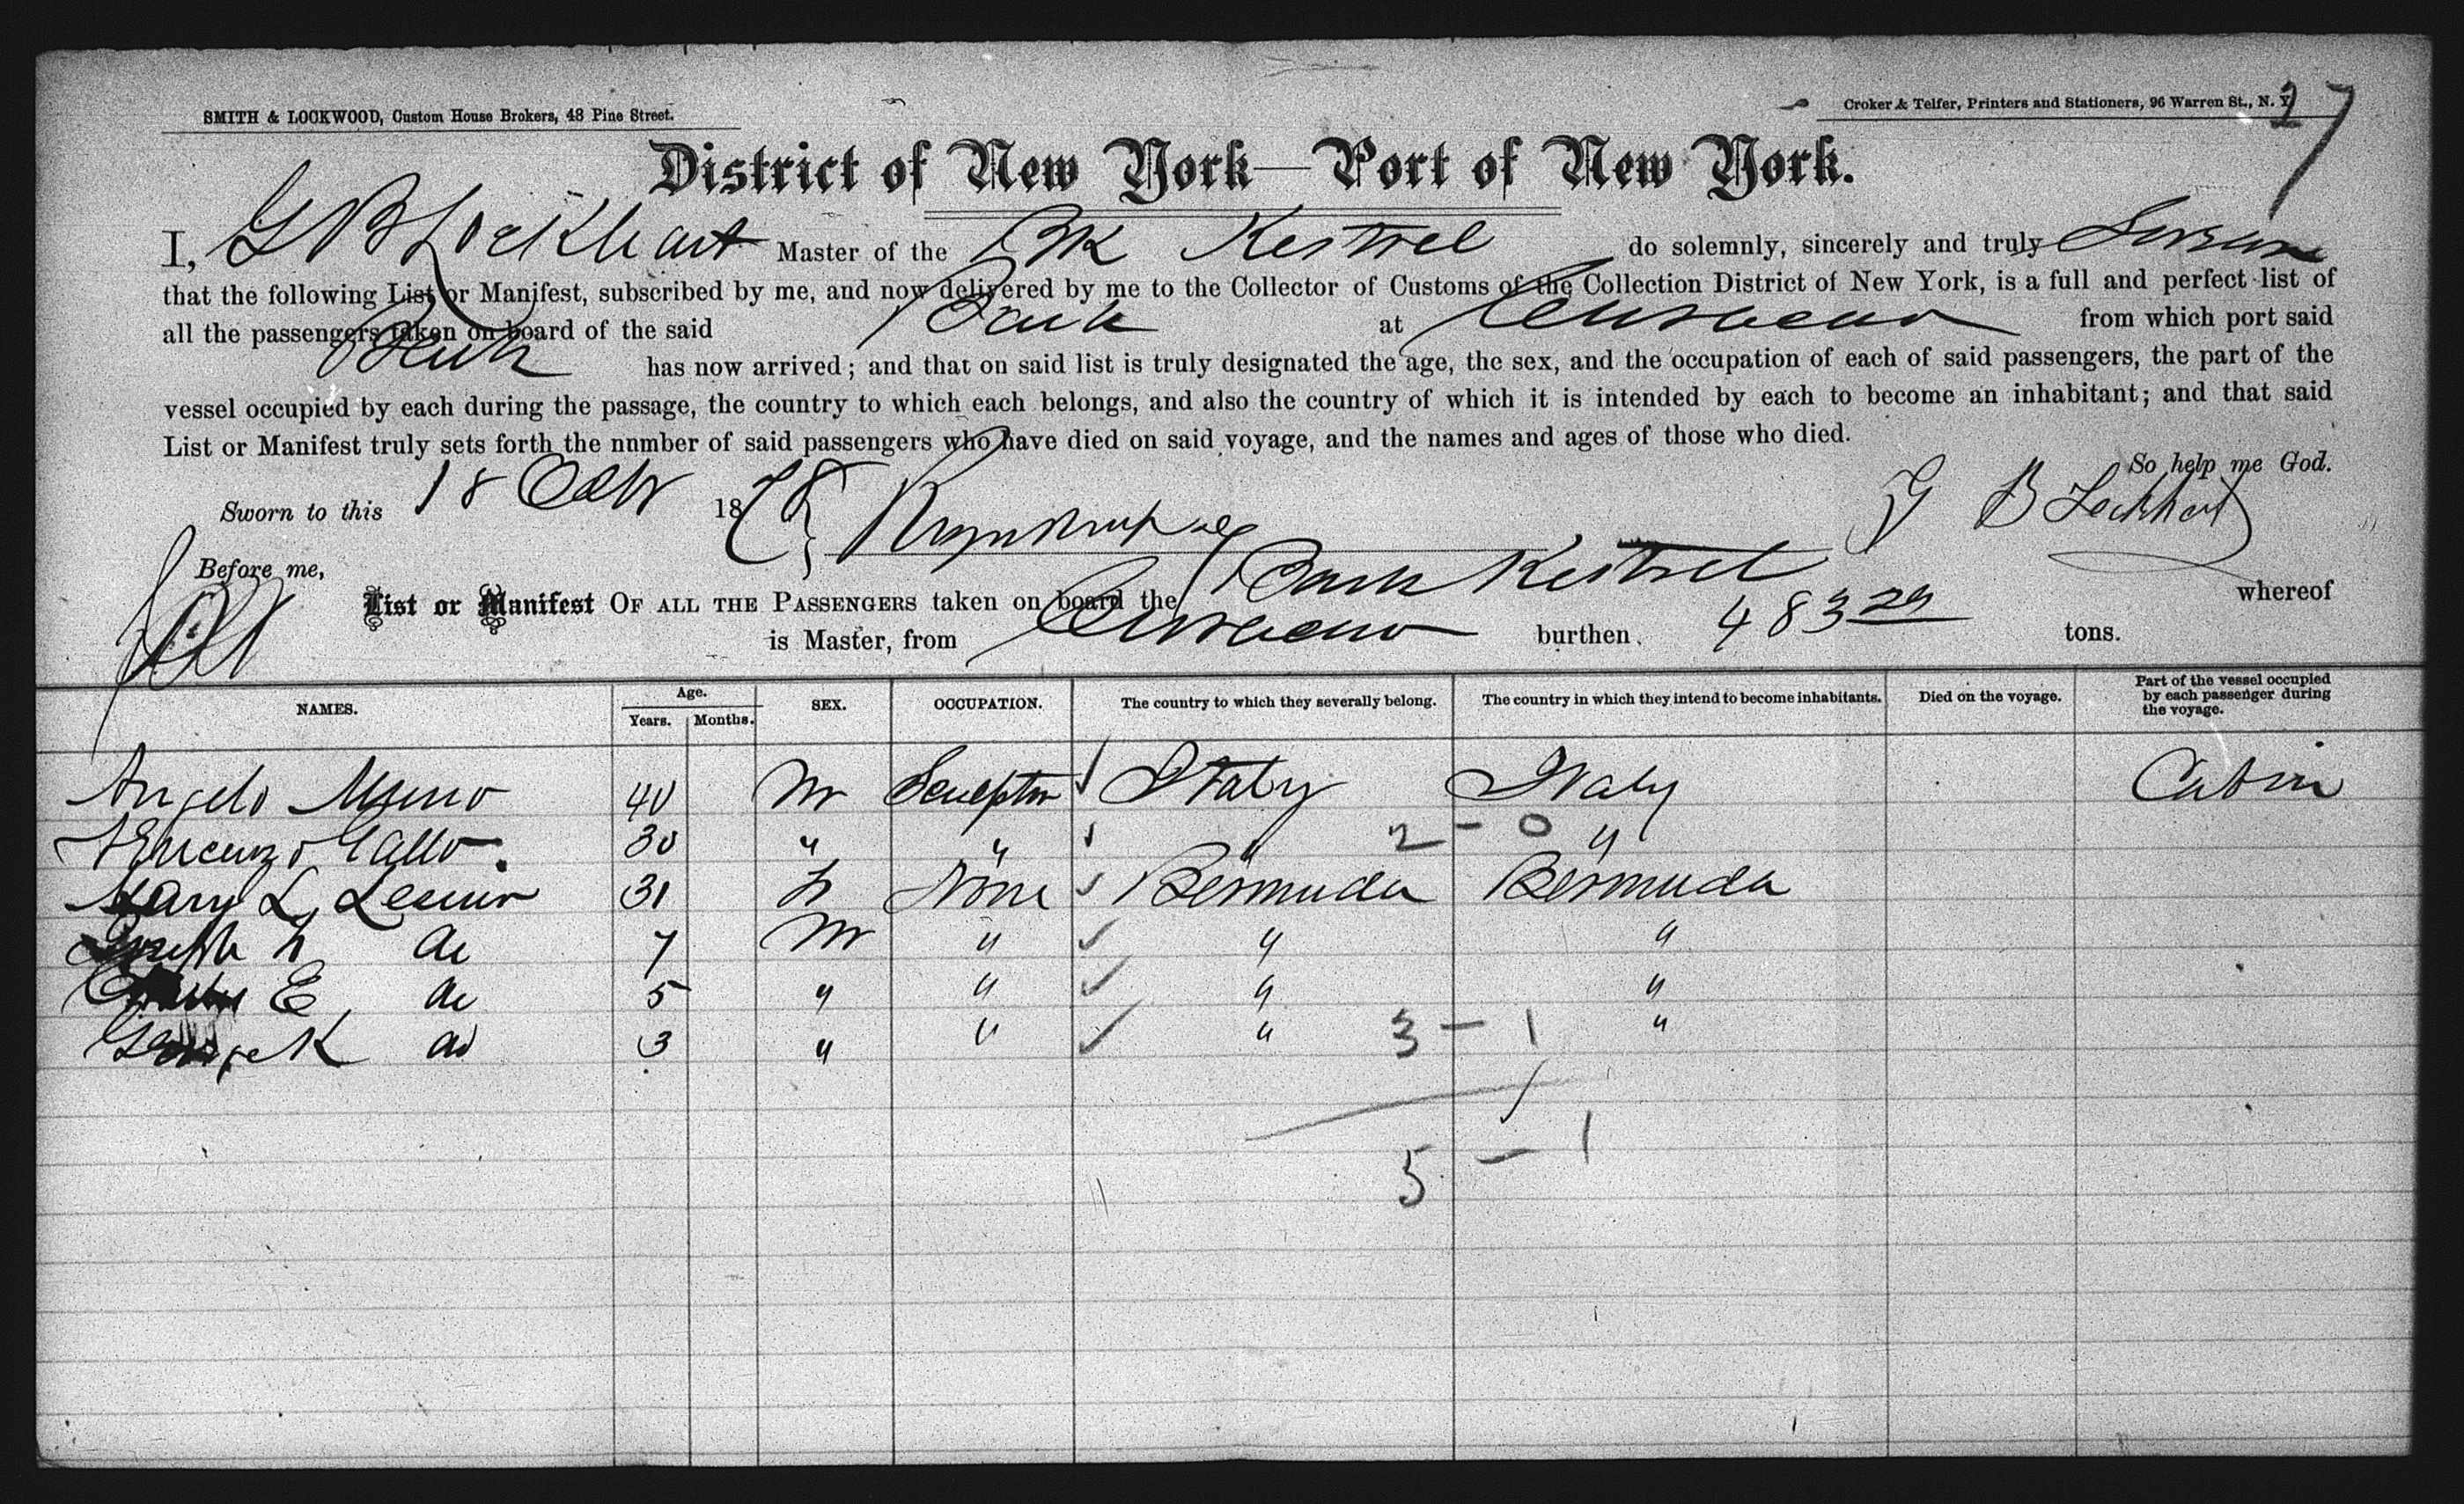 SMITH & LOCKWOOD, Custom House Brokers, 48 Pine Street.
Croker & Telfer, Printers and Stationers, 96 Warren St., N. Y.
27
District of New York—Port of New York.
I, G B Lockhart Master of the Bk Kestrel do solemnly, sincerely and truly Swear
that the following List or Manifest, subscribed by me, and now delivered by me to the Collector of Customs of the Collection District of New York, is a full and perfect list of
all the passengers taken on board of the said Bark at Curacao from which port said
Bark has now arrived; and that on said list is truly designated the age, the sex, and the occupation of each of said passengers, the part of the
vessel occupied by each during the passage, the country to which each belongs, and also the country of which it is intended by each to become an inhabitant; and that said
List or Manifest truly sets forth the number of said passengers who have died on said voyage, and the names and ages of those who died.
So help me God.
Sworn to this 18 Octr 1878 G B Lockhart
Before me,
List or Manifest OF ALL THE PASSENGERS taken on board the Bark Kestrel whereof
is Master, from Curacao burthen 483 29 tons.
NAMES. Age. Years. Months. SEX. OCCUPATION. The country to which they severally belong. The country in which they intend to become inhabitants. Died on the voyage. Part of the vessel occupied by each passenger during the voyage.
Angelo 40 M Sculptor Italy Italy Cabin
Vincenzo Gallo 30 " " " 2 - 0 "
Mary L. 31 F None Bermuda Bermuda
Joseph 7 M " " "
E 5 " " " "
George K 3 " " " 3 - 1 "
5 - 1